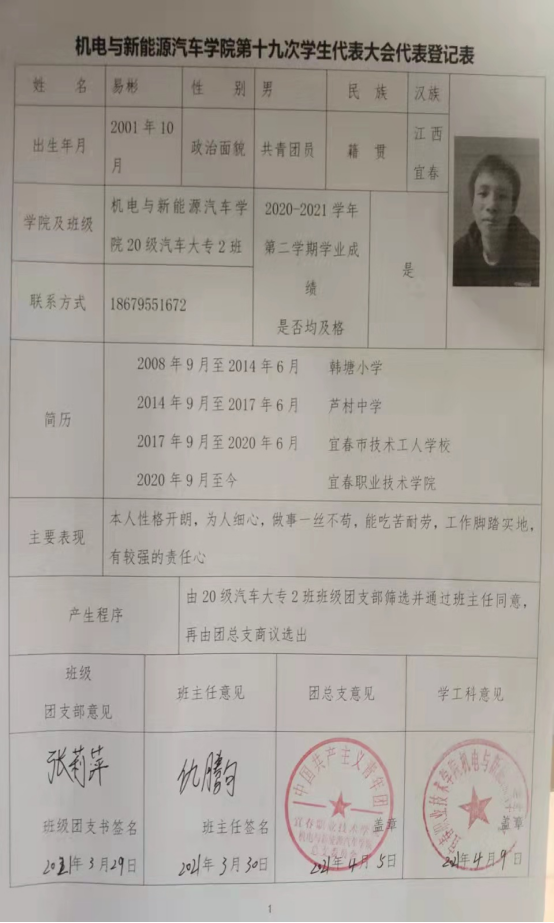 机电与新能源汽车学院第十九次学生代表大会代表登记表
姓 名 易彬 性 别 男 民 族 汉族
出生年月 2001年10月 政治面貌 共青团员 籍 贯 江西宜春
学院及班级 机电与新能源汽车学院20级汽车大专2班
2020-2021学年
第二学期学业成绩
是否均及格
是
联系方式 18679551672
简历
2008年9月至2014年6月 韩塘小学
2014年9月至2017年6月 芦村中学
2017年9月至2020年6月 宜春市技术工人学校
2020年9月至今 宜春职业技术学院
主要表现
本人性格开朗，为人细心，做事一丝不苟，能吃苦耐劳，工作脚踏实地，
有较强的责任心
产生程序
由20级汽车大专2班班级团支部筛选并通过班主任同意，
再由团总支商议选出
班级
团支部意见
班主任意见
团总支意见
学工科意见
张莉萍
班级团支书签名
2021年3月29日
班主任签名
2021年3月30日
中国共产主义青年团
宜春职业技术学院
机电与新能源汽车学院
盖章
2021年4月5日
职业技术学院机电与新能源
盖章
2021年4月9日
1